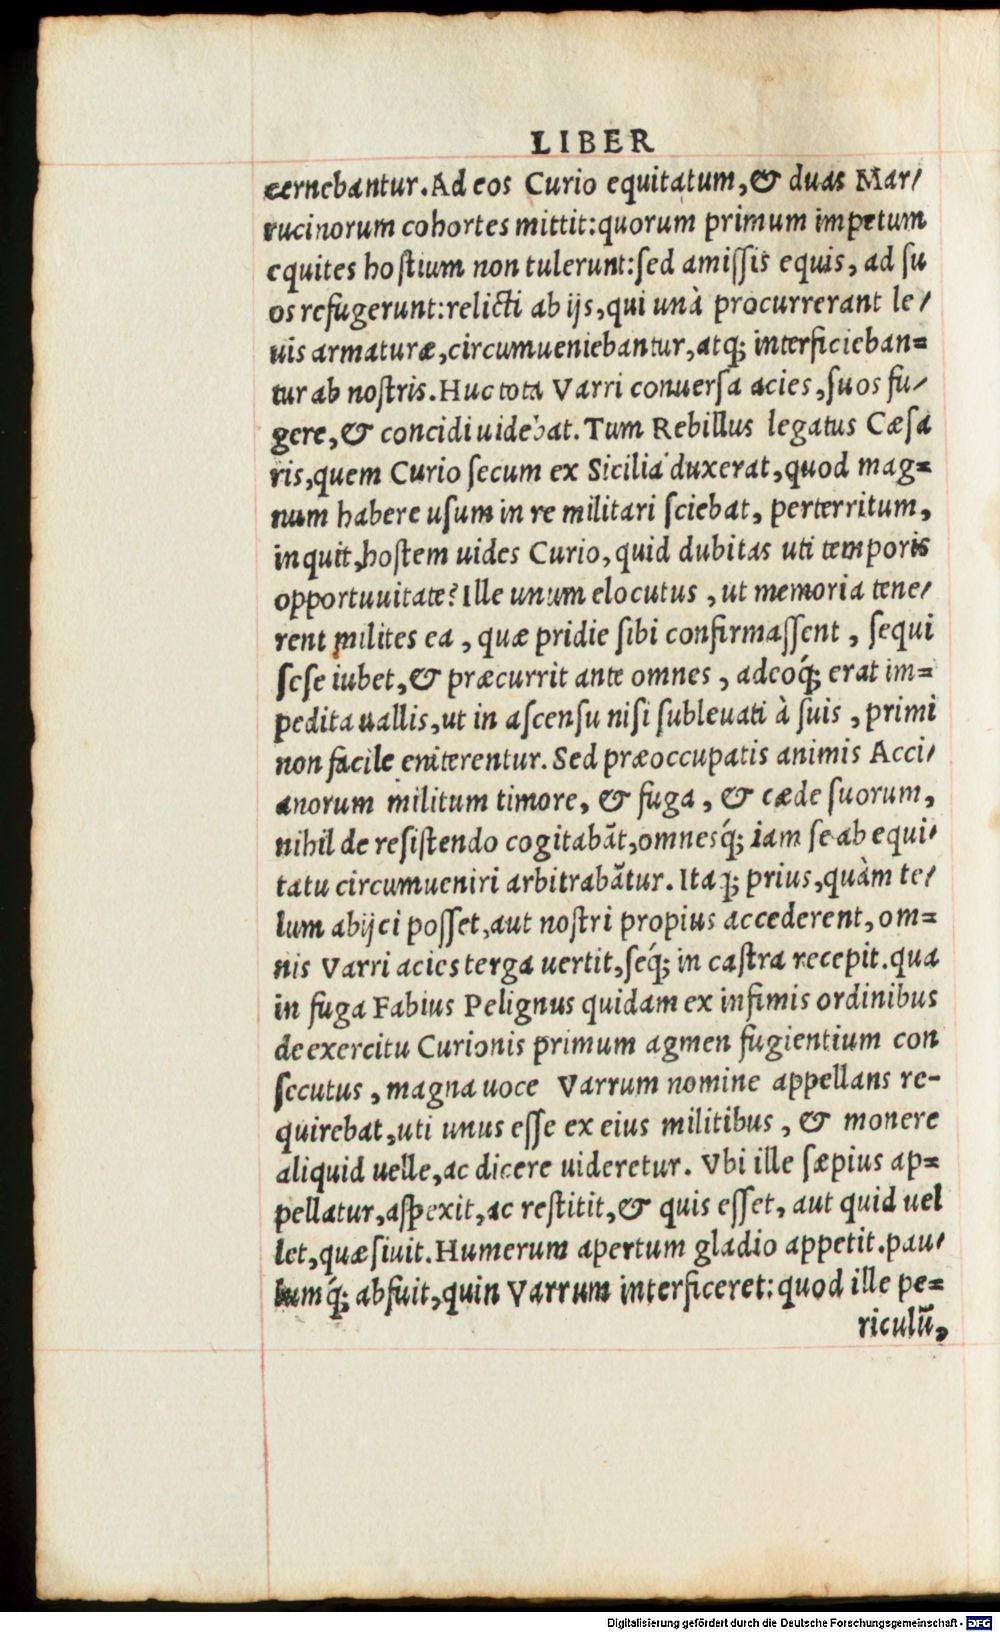 LIBER
cernebantur. Ad eos Curio equitatum, & duas Mar/
rucinorum cohortes mittit: quorum primum impetum
equites hostium non tulerunt: sed amissis equis, ad su
os refugerunt: relicti ab ijs, qui unà procurrerant le/
uis armaturæ, circumueniebantur, atq; interficieban=
tur ab nostris. Huc tota Varri conuersa acies, suos fu/
gere, & concidi uidebat. Tum Rebillus legatus Cæsa
ris, quem Curio secum ex Sicilia duxerat, quod mag=
num habere usum in re militari sciebat, perterritum,
inquit, hostem uides Curio, quid dubitas uti temporis
opportuuitate? Ille unum elocutus, ut memoria tene/
rent milites ea, quæ pridie sibi confirmassent, sequi
sese iubet, & præcurrit ante omnes, adeoq́; erat im=
pedita uallis, ut in ascensu nisi subleuati à suis, primi
non facile eniterentur. Sed præoccupatis animis Acci/
anorum militum timore, & fuga, & cæde suorum,
nihil de resistendo cogitabãt, omnesq́; iam se ab equi/
tatu circumueniri arbitrabãtur. Itaq; prius, quàm te/
lum abijci posset, aut nostri propius accederent, om=
nis Varri acies terga uertit, seq́; in castra recepit. qua
in fuga Fabius Pelignus quidam ex infimis ordinibus
de exercitu Curionis primum agmen fugientium con
secutus, magna uoce Varrum nomine appellans re-
quirebat, uti unus esse ex eius militibus, & monere
aliquid uelle, ac dicere uideretur. Vbi ille sæpius ap=
pellatur, aspexit, ac restitit, & quis esset, aut quid uel
let, quæsiuit. Humerum apertum gladio appetit. pau/
lumq́; abfuit, quin Varrum interficeret: quod ille pe=
riculũ,
Digitalisierung gefördert durch die Deutsche Forschungsgemeinschaft - DFG